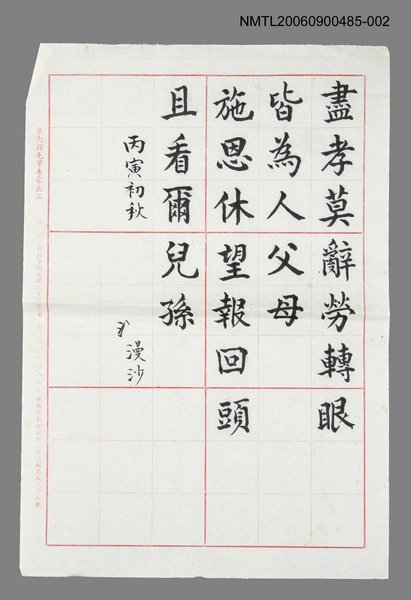 NMTL20060900485-002
盡孝莫辭勞轉眼
皆為人父母
施恩休望報回頭
且看爾兒孫
丙寅初秋
漫沙